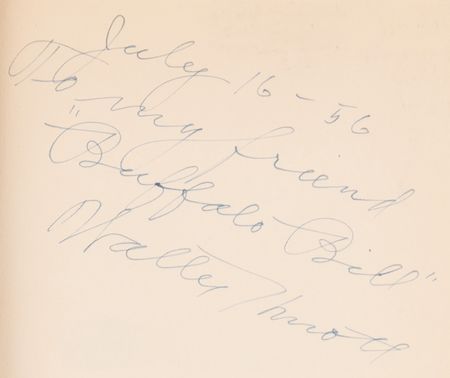 July 16-56
To my friend
"Buffalo Bill"
Walter Knott